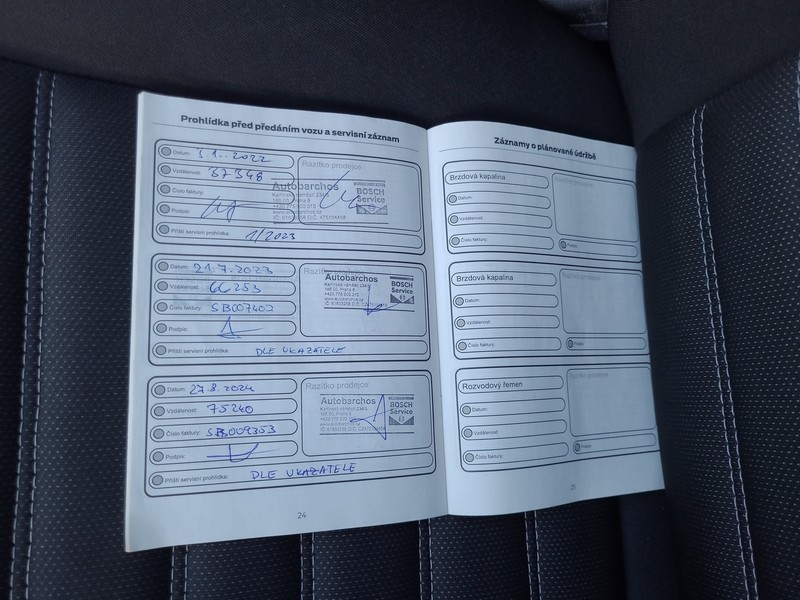 Prohlídka před předáním vozu a servisní záznam
Datum: 3.1..2022
Razítko prodejce
Vzdálenost: 57348
Číslo faktury:
Autobarchos
BOSCH
Service
Podpis:
Příští servisní prohlídka: 1/2023
Datum: 21.7.2023
Autobarchos
BOSCH
Service
Vzdálenost: 66253
Číslo faktury: SB007402
Podpis:
Příští servisní prohlídka: DLE UKAZATELE
Datum: 27.8.2024
Razítko prodejce
Vzdálenost: 75240
Autobarchos
BOSCH
Service
Číslo faktury: SB009353
Podpis:
Příští servisní prohlídka: DLE UKAZATELE
24
Záznamy o plánované údržbě
Brzdová kapalina
Datum:
Vzdálenost:
Číslo faktury:
Podpis:
Brzdová kapalina
Datum:
Vzdálenost:
Číslo faktury:
Podpis:
Rozvodový řemen
Datum:
Vzdálenost:
Číslo faktury:
Podpis:
25